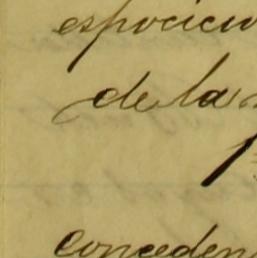 espocicio
de la
1ª
conceden